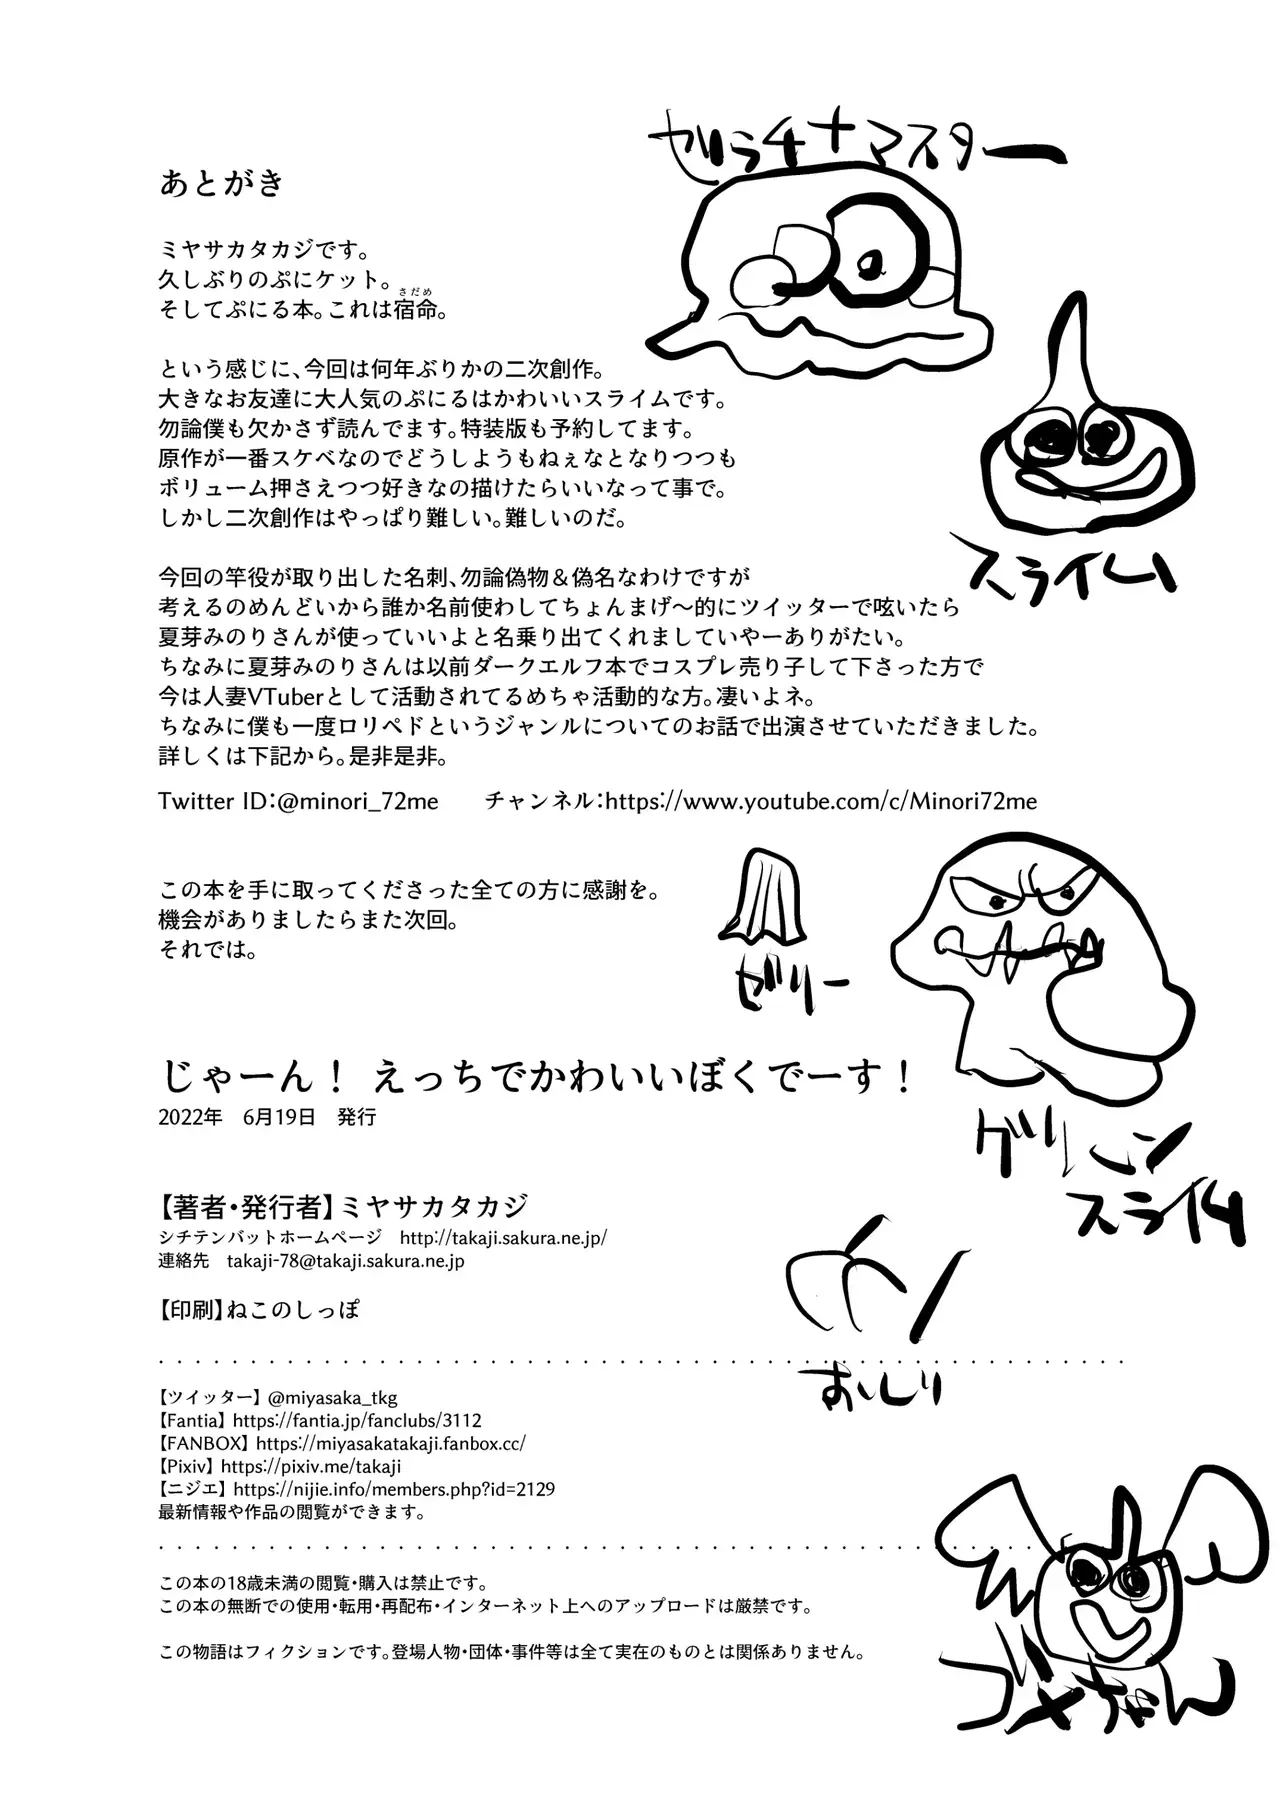 あとがき
ミヤサカタカジです。
久しぶりのぷにケット。
そしてぷにる本。これは宿命。
さだめ
という感じに、今回は何年ぶりかの二次創作。
大きなお友達に大人気のぷにるはかわいいスライムです。
勿論僕も欠かさず読んでます。特装版も予約してます。
原作が一番スケベなのでどうしようもねぇなとなりつつも
ボリューム押さえつつ好きなの描けたらいいなって事で。
しかし二次創作はやっぱり難しい。難しいのだ。
今回の竿役が取り出した名刺、勿論偽物＆偽名なわけですが
考えるのめんどいから誰か名前使わしてちょんまげ～的にツイッターで呟いたら
夏芽みのりさんが使っていいよと名乗り出てくれましていやーありがたい。
ちなみに夏芽みのりさんは以前ダークエルフ本でコスプレ売り子して下さった方で
今は人妻VTuberとして活動されてるめちゃ活動的な方。凄いよネ。
ちなみに僕も一度ロリペドというジャンルについてのお話で出演させていただきました。
詳しくは下記から。是非是非。
Twitter ID：@minori_72me　チャンネル：https://www.youtube.com/c/Minori72me
この本を手に取ってくださった全ての方に感謝を。
機会がありましたらまた次回。
それでは。
じゃーん！ えっちでかわいいぼくでーす！
2022年　6月19日　発行
【著者・発行者】ミヤサカタカジ
シチテンバットホームページ　http://takaji.sakura.ne.jp/
連絡先　takaji-78@takaji.sakura.ne.jp
【印刷】ねこのしっぽ
【ツイッター】@miyasaka_tkg
【Fantia】https://fantia.jp/fanclubs/3112
【FANBOX】https://miyasakatakaji.fanbox.cc/
【Pixiv】https://pixiv.me/takaji
【ニジエ】https://nijie.info/members.php?id=2129
最新情報や作品の閲覧ができます。
この本の18歳未満の閲覧・購入は禁止です。
この本の無断での使用・転用・再配布・インターネット上へのアップロードは厳禁です。
この物語はフィクションです。登場人物・団体・事件等は全て実在のものとは関係ありません。
ゼラチナマスター
スライム
ゼリー
グリーン
スライム
おしり